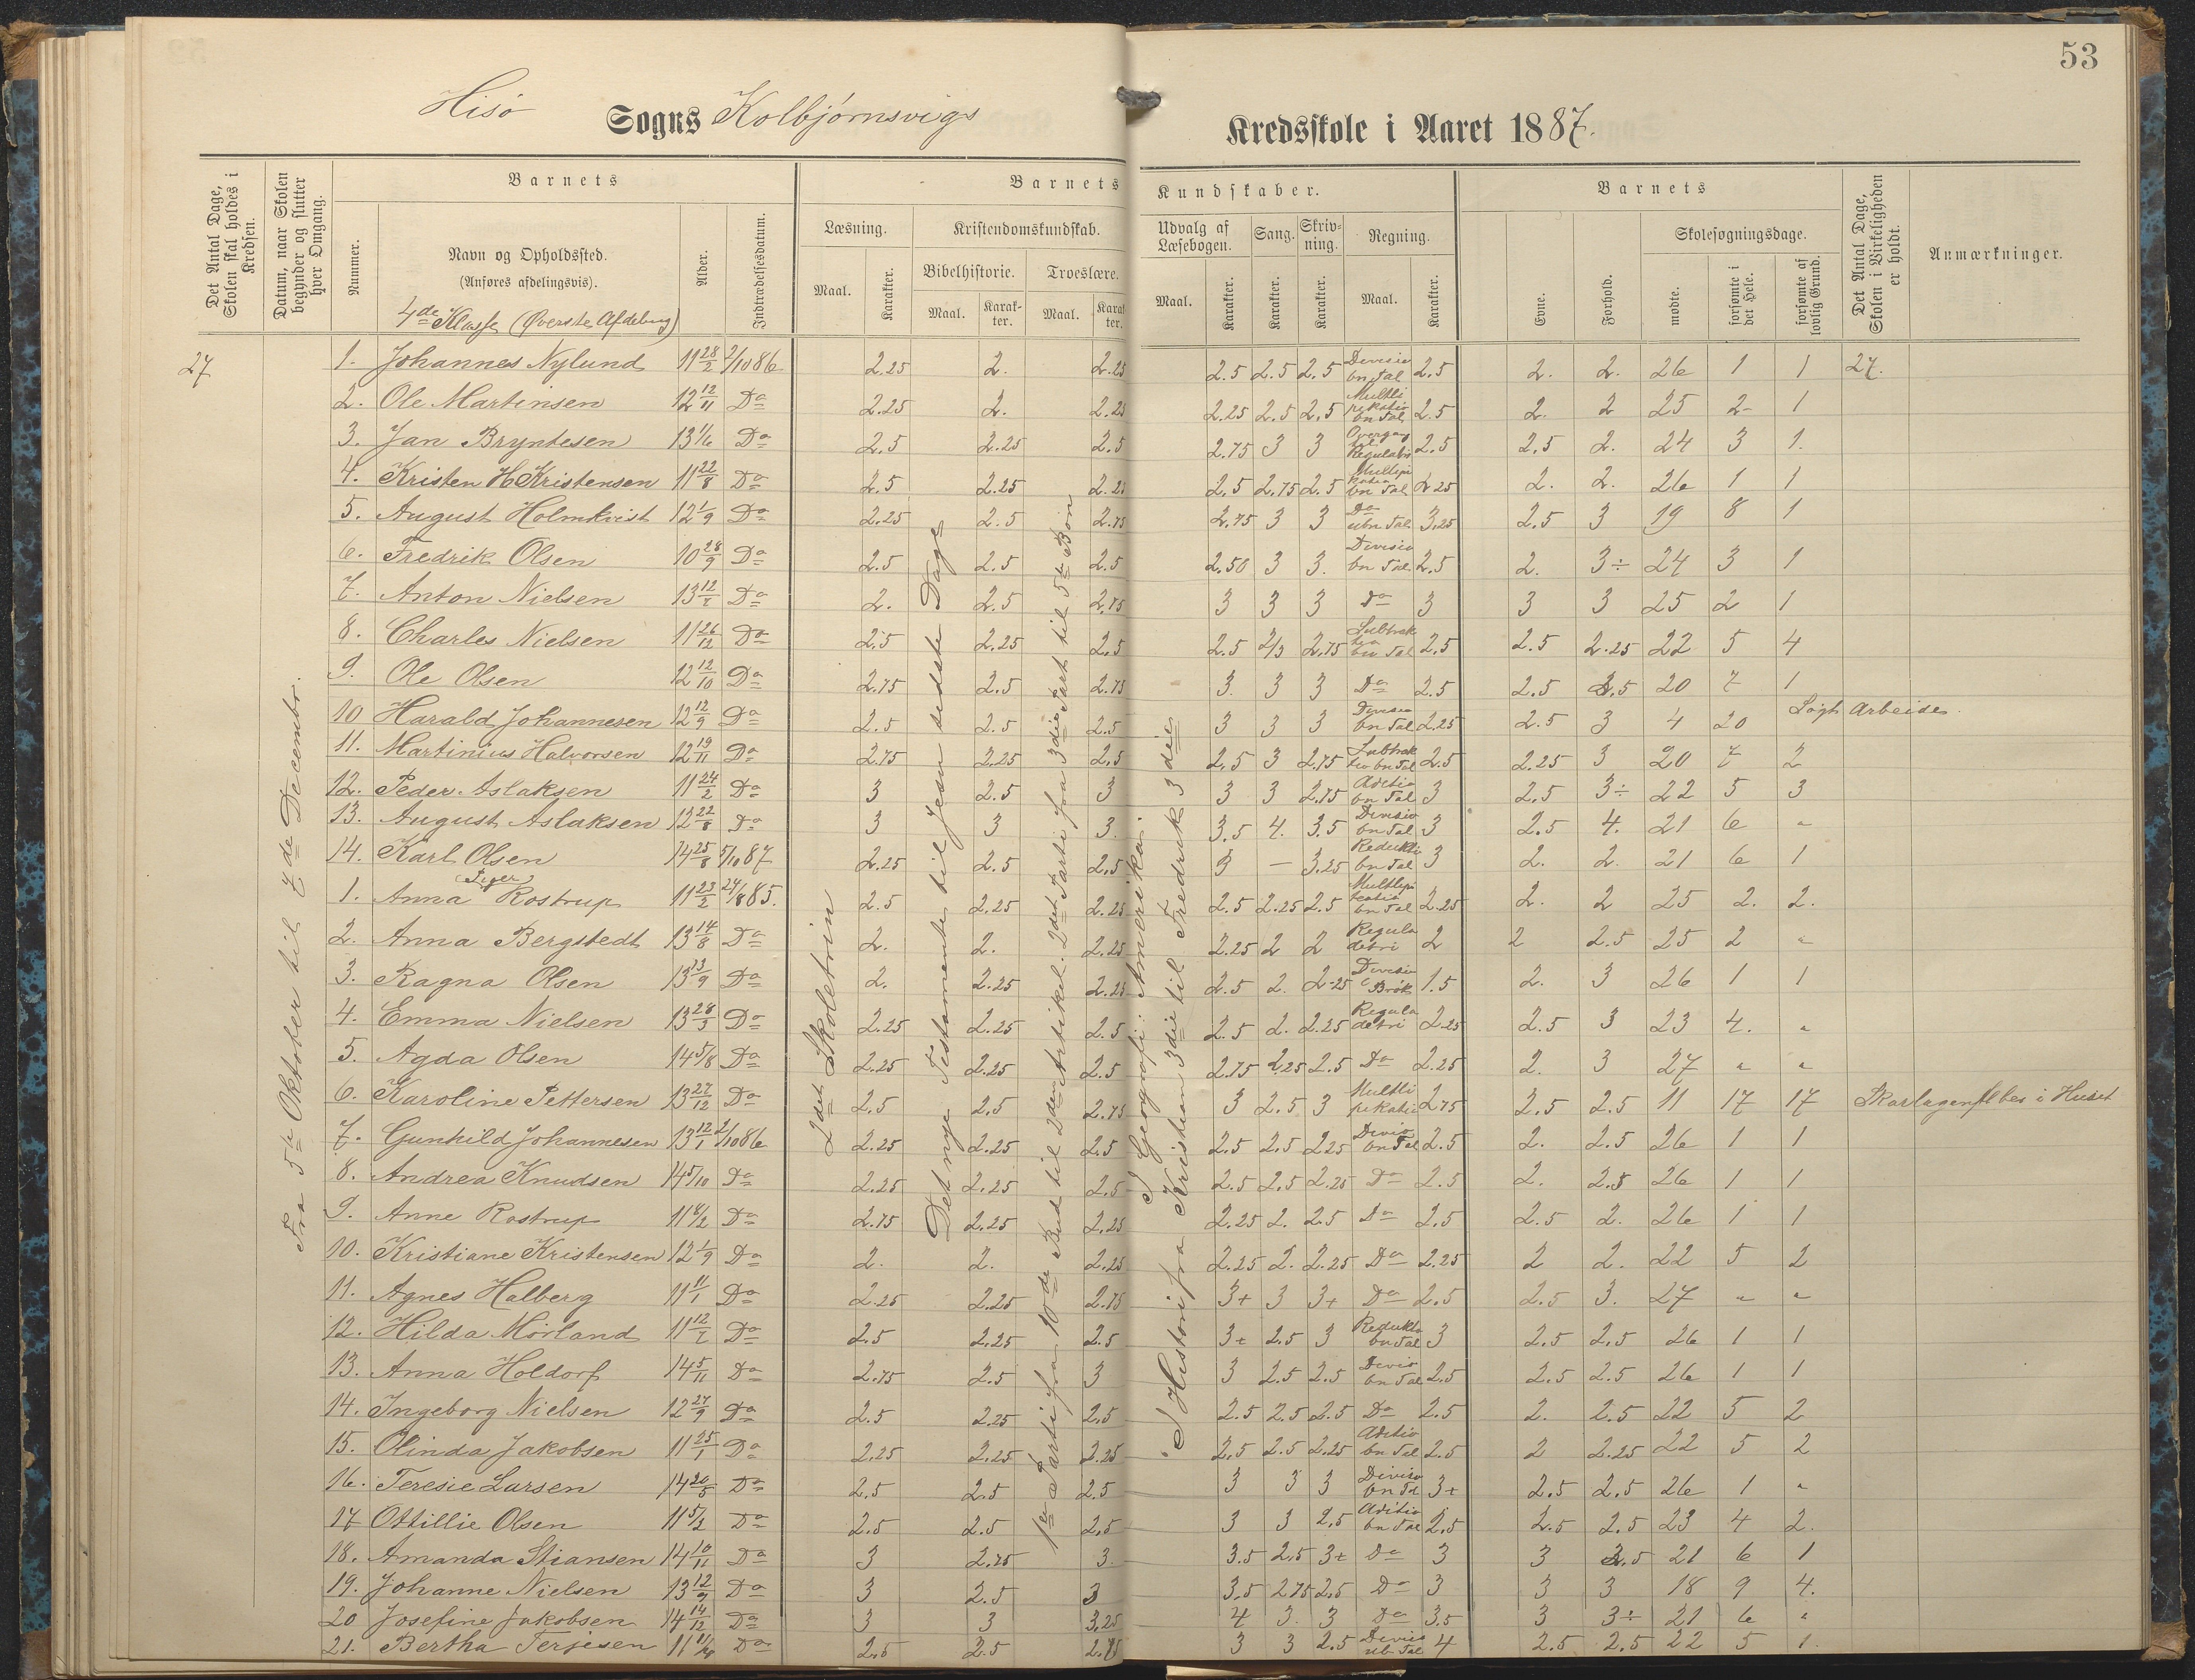 53
Hisö Sogns Kolbjørnsvigs Kredsskole i Aaret 1887.
Det Antal Dage, Skolen skal holdes i Kredsen.
Datum, naar Skolen begynder og slutter hver Omgang.
Barnets
Nummer.
Navn og Opholdssted.
(Anføres afdelingsvis).
4de Klasse (Øverste Afdeling)
Alder.
Indtrædelsesdatum.
Barnets Kundskaber.
Læsning.
Maal.
Karakter.
Kristendomskundskab.
Bibelhistorie.
Maal.
Karakter.
Troeslære.
Maal.
Karakter.
Udvalg af Læsebogen.
Maal.
Karakter.
Sang.
Karakter.
Skrivning.
Karakter.
Regning.
Maal.
Karakter.
Barnets
Evne.
Forhold.
Skolesøgningsdage.
mødte.
forsømte i det Hele.
forsømte af lovlig Grund.
Det Antal Dage, Skolen i Virkeligheden er holdt.
Anmærkninger.
27
Fra 5te Oktober til 7de Decembr.
2det Skoletrin
Det nye Testamente til Jesu sidste Dage
1ste Parti fra 10de Bud til 2den Artikel. 2det Parti fra 3die Part til 5te Bøn
I Geografi: Amerika.
I Historie fra Kristian 3die til Fredrik 3die
1. Johannes Nylund 11 28/2 2/10 86 2.25 2. 2.25 2.5 2.5 2.5 Divisio bn Tal 2.5 2. 2. 26 1 1 27.
2. Ole Martinsen 12 12/11 Do 2.25 2. 2.25 2.25 2.5 2.5 Multiplikatio bn Tal 2.5 2. 2 25 2 1
3. Jan Bryntesen 13 1/6 Do 2.5 2.25 2.5 2.75 3 3 2.5 2.5 2. 24 3 1.
4. Kristen H Kristensen 11 22/8 Do 2.5 2.25 2.25 2.5 2.75 2.5 bn Tal 2.25 2. 2. 26 1 1
5. August Holmkvist 12 1/9 Do 2.25 2.5 2.75 2.75 3 3 Do ubn Tal 3.25 2.5 3 19 8 1
6. Fredrik Olsen 10 28/9 Do 2.5 2.5 2.5 2.50 3 3. Divisio bn Tal 2.5 2. 3÷ 24 3 1
7. Anton Nielsen 13 12/2 Do 2. 2.5 2.75 3 3 3 Do 3 3 3 25 2 1
8. Charles Nielsen 11 26/12 Do 2.5 2.25 2.5 2.5 2/3 2.75 Subtraktio bn Tal 2.5 2.5 2.25 22 5 4
9. Ole Olsen 12 12/10 Do 2.75 2.5 2.75 3. 3 3 Do 2.5 2.5 3.5 20 7 1
10 Harald Johannesen 12 12/9 Do 2.5 2.5 2.5 3 3 3 Divisio bn Tal 2.25 2.5 3 4 20 Søgt Arbeide.
11. Martinius Halvorsen 12 19/11 Do 2.75 2.25 2.5 2.5 3 2.75 Subtraktio bn Tal 2.5 2.25 3 20 7 2
12. Peder Aslaksen 11 24/2 Do 3 2.5 3 3 3 2.75 Aditio bn Tal 3 2.5 3÷ 22 5 3
13. August Aslaksen 12 22/8 Do 3 3 3. 3.5 4. 3.5 Divisio bn Tal 3 2.5 4. 21 6 "
14. Karl Olsen 14 25/8 5/10 87 2.25 2.5 2.5 3 — 3.25 Reduktio bn Tal 3 2. 2. 21 6 1
Piger
1. Anna Rostrup 11 23/2 24/8 85. 2.5 2.25 2.25 2.5 2.25 2.5 bn Tal 2.25 2. 2 25 2. 2.
2. Anna Bergstedt 13 14/8 Do 2. 2. 2.25 2.25 2 2 Regula detri 2 2 2.5 25 2 "
3. Ragna Olsen 13 13/9 Do 2. 2.25 2.25 2.5 2. 2.25 Divisio i Brøk 1.5 2. 3 26 1 1
4. Emma Nielsen 13 28/3 Do 2.25 2.25 2.5 2.5 2. 2.25 Regula detri 2.25 2.5 3 23 4. "
5. Agda Olsen 14 5/8 Do 2.25 2.25 2.5 2.75 2.25 2.5 Do 2.25 2. 3 27 " "
6. Karoline Pettersen 13 27/12 Do 2.5 2.5 2.75 3 2.5 3 Multiplikatio 2.75 2.5 2.5 11 17 17 Skarlagensfeber i Huset
7. Gunhild Johannesen 13 12/1 2/10 86 2.25 2.25 2.5 2.5 2.5 2.25 Divisio bn Tal 2.5 2. 2.5 26 1 1
8. Andrea Knudsen 14 5/10 Do 2.25 2.25 2.5 2.5 2.5 2.25 Do 2.5 2. 2.5 26 1 1
9. Anne Rostrup 11 8/2 Do 2.75 2.25 2.25 2.25 2. 2.5 Do 2.5 2.5 2. 26 1 1
10. Kristiane Kristensen 12 1/9 Do 2. 2. 2.25 2.25 2. 2.25 Do 2.25 2 2. 22 5 2
11. Agnes Halberg 11 11/1 Do 2.25 2.25 2.75 3+ 3 3+ Do 2.5 2.5 3. 27 " "
12. Hilda Mørland 11 12/2 Do 2.5 2.25 2.5 3+ 2.5 3 Reduktio bn Tal 3 2.5 2.5 26 1 1
13. Anna Holdorf 14 5/11 Do 2.75 2.5 3 3 2.5 2.5 Divisio bn Tal 2.5 2.5 2.5 26 1 1
14. Ingeborg Nielsen 12 27/9 Do 2.5 2.25 2.5 2.5 2.5 2.5 Do 2.5 2. 2.5 22 5 2
15. Olinda Jakobsen 11 25/1 Do 2.25 2.25 2.25 2.5 2.5 2.25 Aditio bn Tal 2.5 2 2.25 22 5 2
16. Teresie Larsen 14 20/5 Do 2.5 2.5 2.5 3 3 3 Divisio bn Tal 3+ 2.5 2.5 26 1 "
17 Ottillie Olsen 11 5/2 Do 2.5 2.5 2.5 3 3 2.5 Aditio bn Tal 2.5 2.5 2.5 23 4 2.
18. Amanda Stiansen 14 10/11 Do 3 2.75 3. 3.5 2.5 3+ Do 3 3 3.5 21 6 1
19. Johanne Nielsen 13 12/9 Do 3 2.5 3 3.5 2.75 2.5 Do 3 3 3 18 9 4.
20 Josefine Jakobsen 14 14/12 Do 3 3 3.25 4 3. 3 Do 3.5 3 3÷ 21 6 "
21. Bertha Terjesen 11 Do 2.5 2.5 2.75 3 3 2.5 Divisio ub. Tal 4 2.5 2.5 22 5 1.